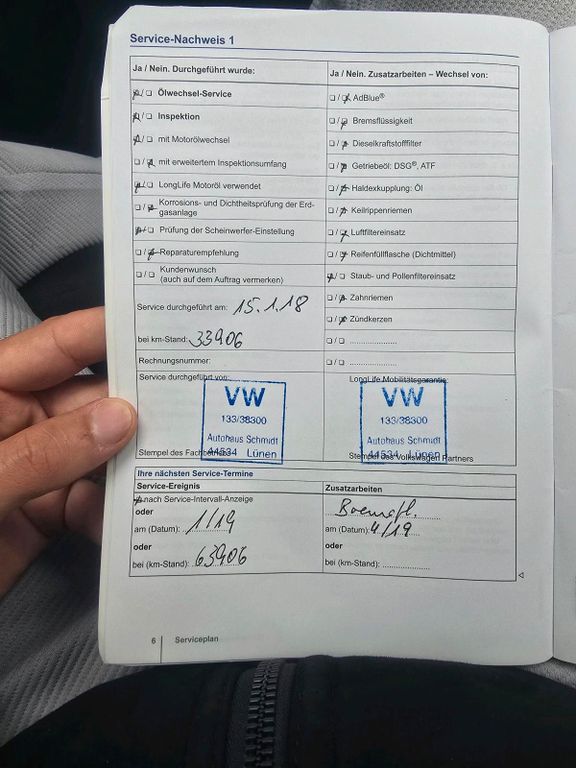 Service-Nachweis 1
Ja / Nein. Durchgeführt wurde:
Ölwechsel-Service
Inspektion
mit Motorölwechsel
mit erweitertem Inspektionsumfang
LongLife Motoröl verwendet
Korrosions- und Dichtheitsprüfung der Erd-
gasanlage
Prüfung der Scheinwerfer-Einstellung
Reparaturempfehlung
Kundenwunsch
(auch auf dem Auftrag vermerken)
Service durchgeführt am: 15.1.18
bei km-Stand: 33906
Rechnungsnummer:
Ja / Nein. Zusatzarbeiten – Wechsel von:
AdBlue®
Bremsflüssigkeit
Dieselkraftstofffilter
Getriebeöl: DSG®, ATF
Haldexkupplung: Öl
Keilrippenriemen
Luftfiltereinsatz
Reifenfüllflasche (Dichtmittel)
Staub- und Pollenfiltereinsatz
Zahnriemen
Zündkerzen
Service durchgeführt von:
VW
133/38300
Autohaus Schmidt
44534 Lünen
Stempel des Fachbetriebs
LongLife Mobilitätsgarantie:
VW
133/38300
Autohaus Schmidt
44534 Lünen
Stempel des Volkswagen Partners
Ihre nächsten Service-Termine
Service-Ereignis
nach Service-Intervall-Anzeige
oder
am (Datum): 1/19
oder
bei (km-Stand): 63906
Zusatzarbeiten
am (Datum): 4/19
oder
bei (km-Stand):
6 Serviceplan